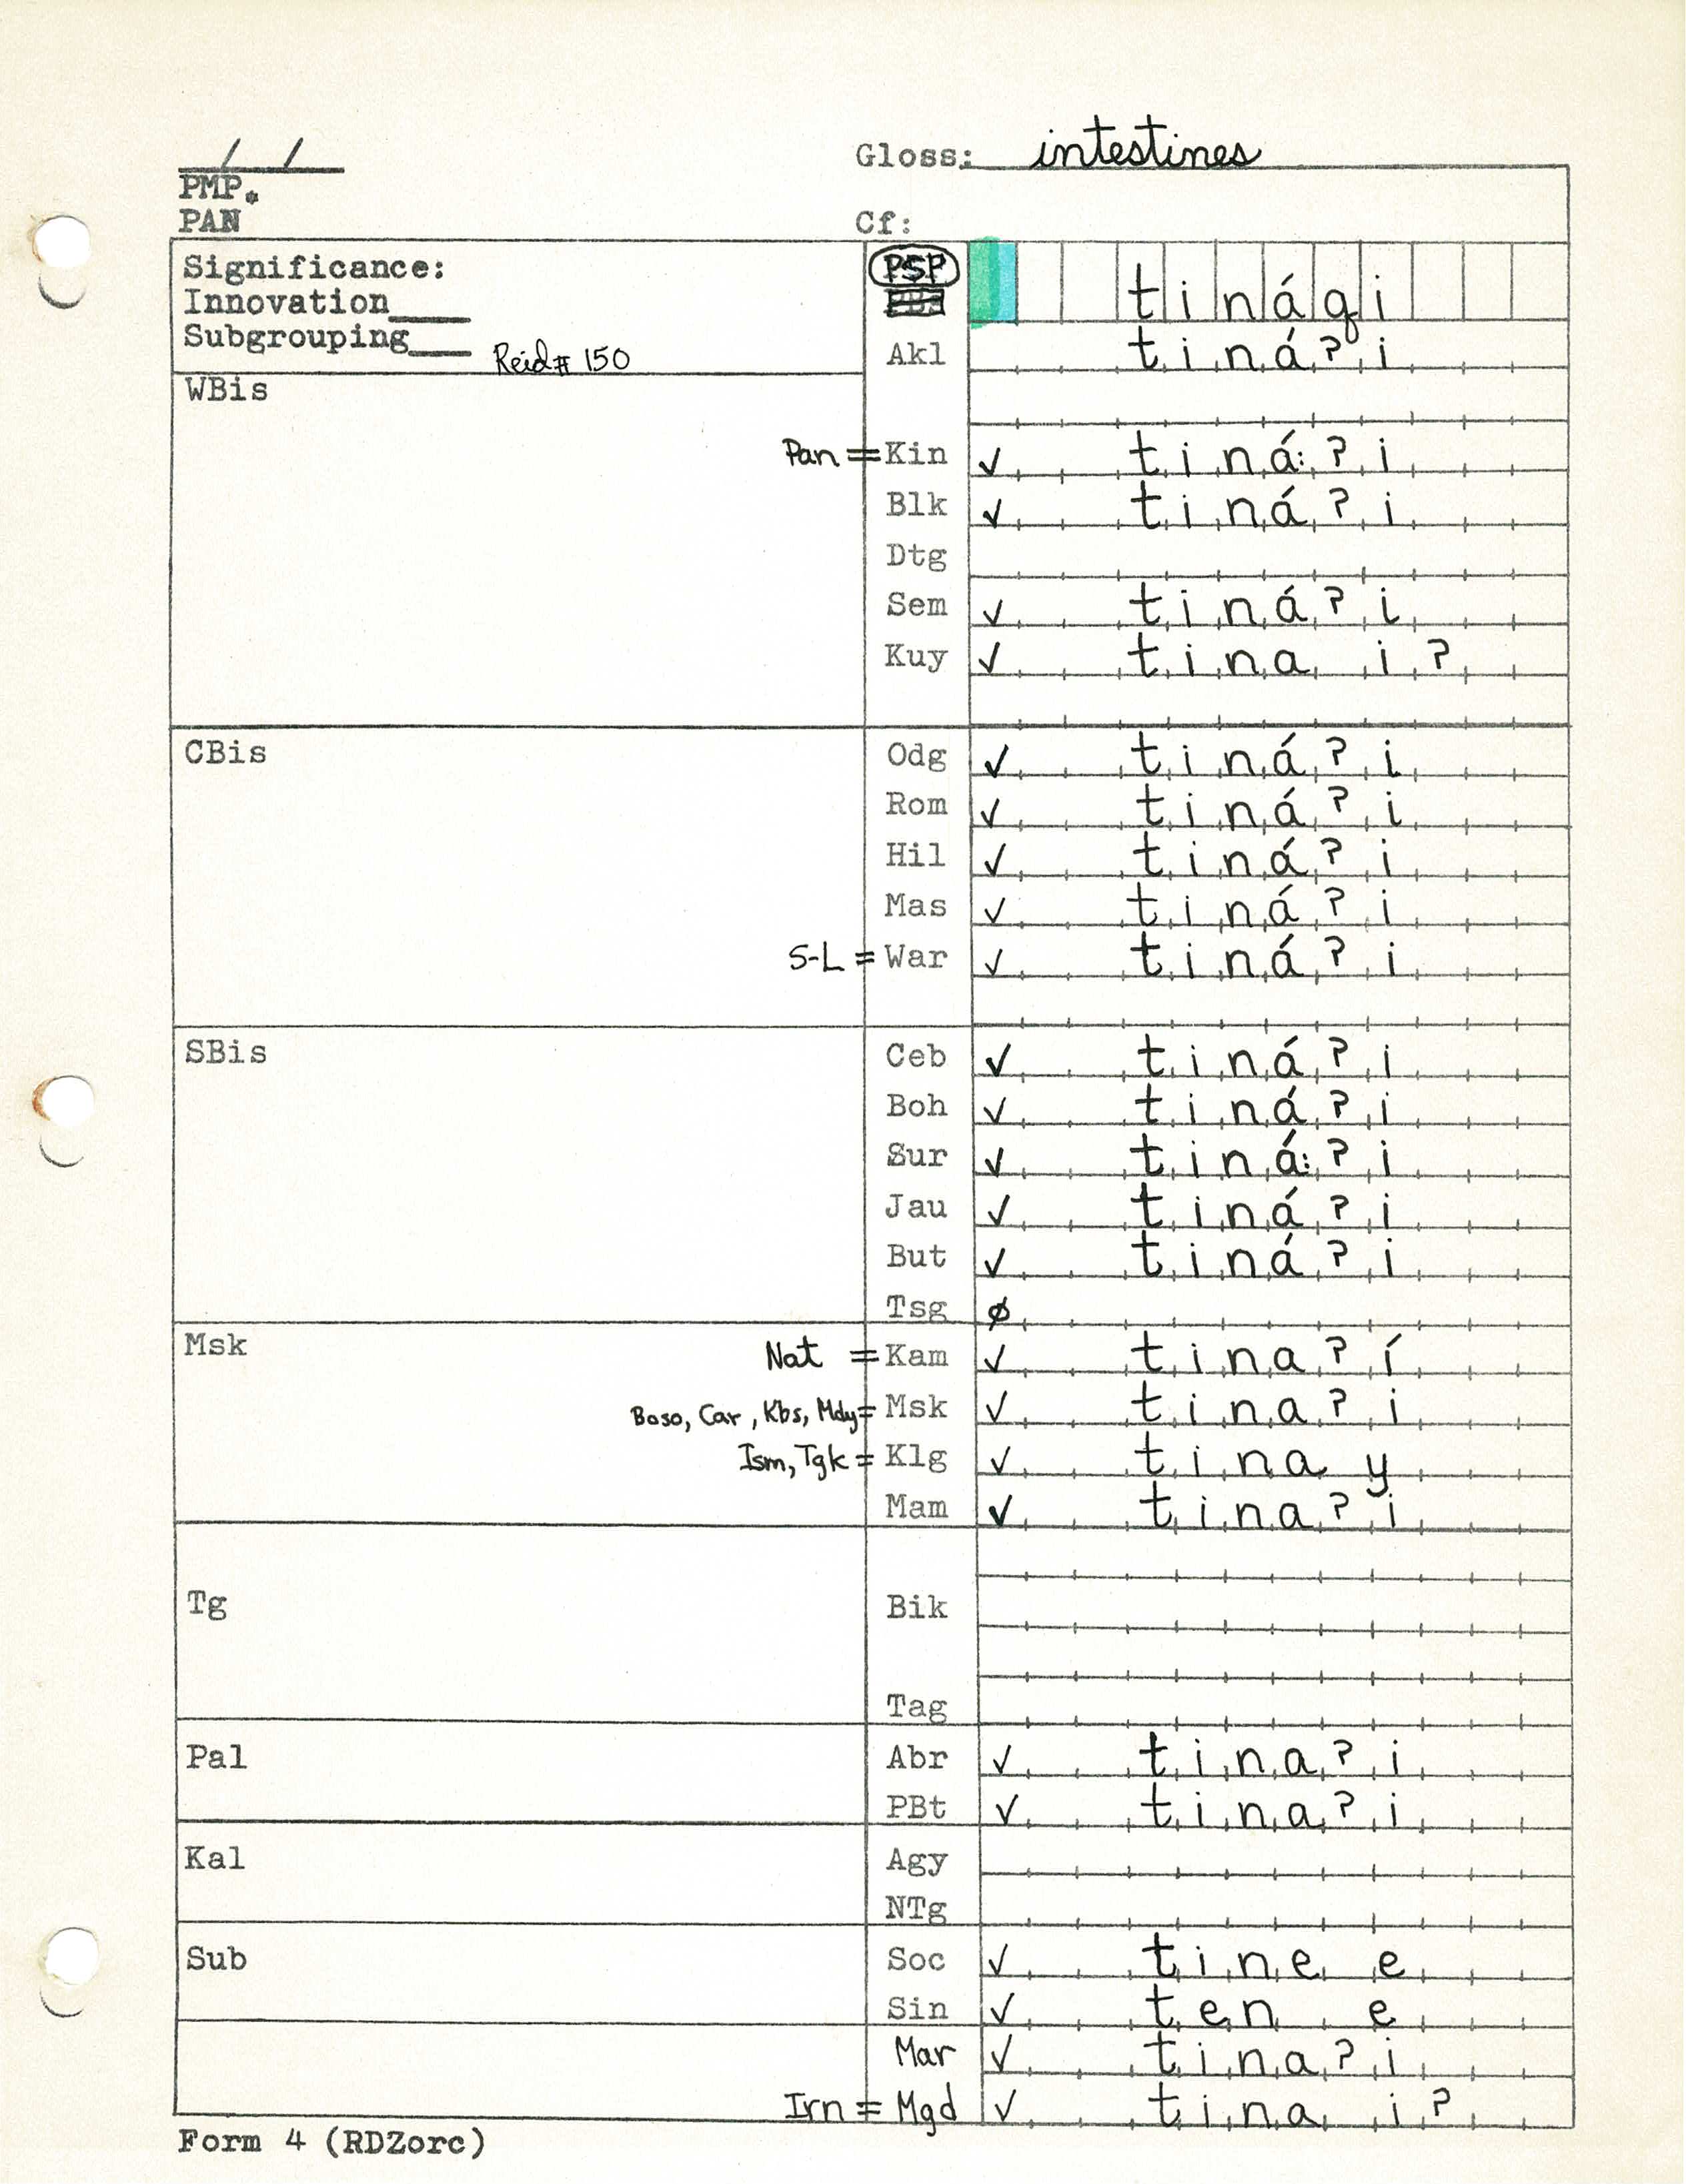 / /
Gloss: intestines
PMP.
PAN
Cf:
Significance:
PSP tináqi
Innovation
Subgrouping
Reid# 150
Akl tiná?i
WBis
Pan = Kin ✓ tiná:?i
Blk ✓ tiná?i
Dtg
Sem ✓ tiná?i
Kuy ✓ tina i?
CBis
Odg ✓ tiná?i
Rom ✓ tiná?i
Hil ✓ tiná?i
Mas ✓ tiná?i
S-L = War ✓ tiná?i
SBis
Ceb ✓ tiná?i
Boh ✓ tiná?i
Sur ✓ tiná:?i
Jau ✓ tiná?i
But ✓ tiná?i
Tsg ø
Msk
Nat = Kam ✓ tina?í
Boso, Car, Kbs, Mdy = Msk ✓ tina?i
Ism, Tgk = Klg ✓ tina y
Mam ✓ tina?i
Tg
Bik
Tag
Pal
Abr ✓ tina?i
PBt ✓ tina?i
Kal
Agy
NTg
Sub
Soc ✓ tine e
Sin ✓ ten e
Mar ✓ tina?i
Irn = Mgd ✓ tina i?
Form 4 (RDZorc)